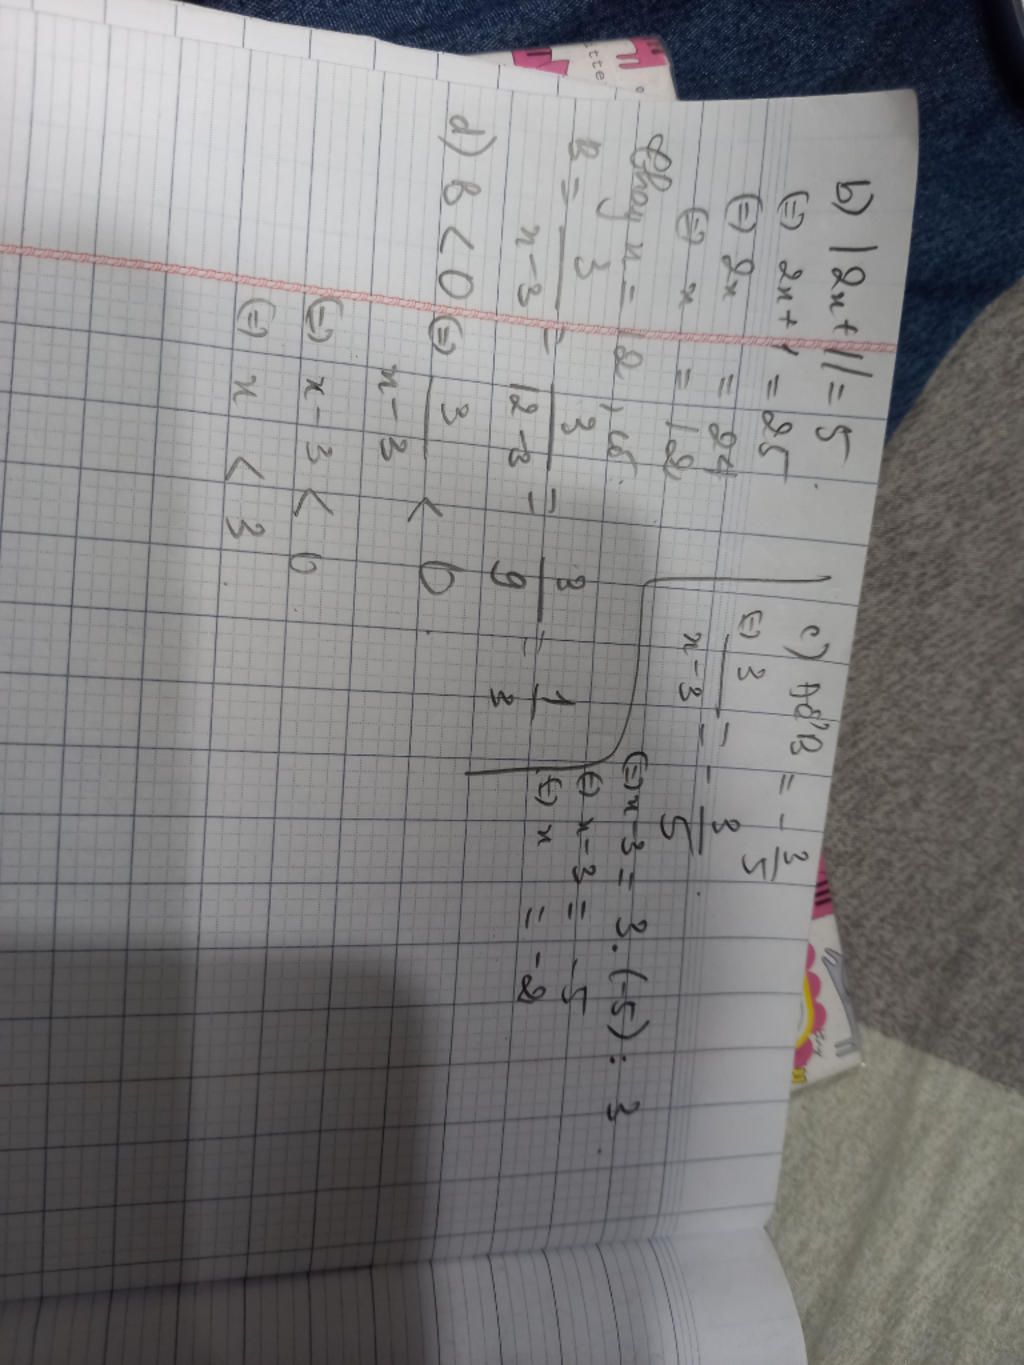 b) |2x+1| = 5
(=) 2x+1 = 25
(=) 2x = 24
(=) x = 12
Thay x = 12, có:
B = 3/(x-3) = 3/(12-3) = 3/9 = 1/3
c) Để B = -3/5
(=) 3/(x-3) = -3/5
(=) x-3 = 3.(-5):3
(=) x-3 = -5
(=) x = -2
d) B < 0 (=) 3/(x-3) < 0
(=) x-3 < 0
(=) x < 3